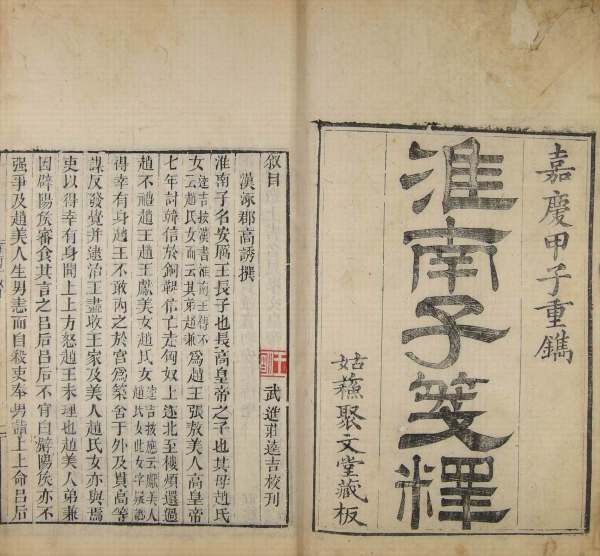 嘉慶甲子重鐫
淮南子箋釋
姑蘓聚文堂藏板
叙目
漢涿郡高誘撰 武進莊逵吉校刊
淮南子名安厲王長子也長高皇帝之子也其母趙氏
女逵吉按漢書淮南王傳不云趙氏女而云其弟趙兼為趙王張敖美人高皇帝
七年討韓信於銅鞮信亡走匈奴上遂北至樓煩還過
趙不禮趙王趙王獻美女趙氏女逵吉按應云獻美人趙氏此女字疑誤
得幸有身趙王不敢内之於宮為築舍于外及貫高等
謀反發覺并逮治王盡收王家及美人趙氏女亦與焉
吏以得幸有身聞上上方怒趙王未理也趙美人弟兼
因辟陽侯審食其言之吕后吕后不肯白辟陽侯亦不
强爭及趙美人生男恚而自殺吏奉男詣上上命吕后